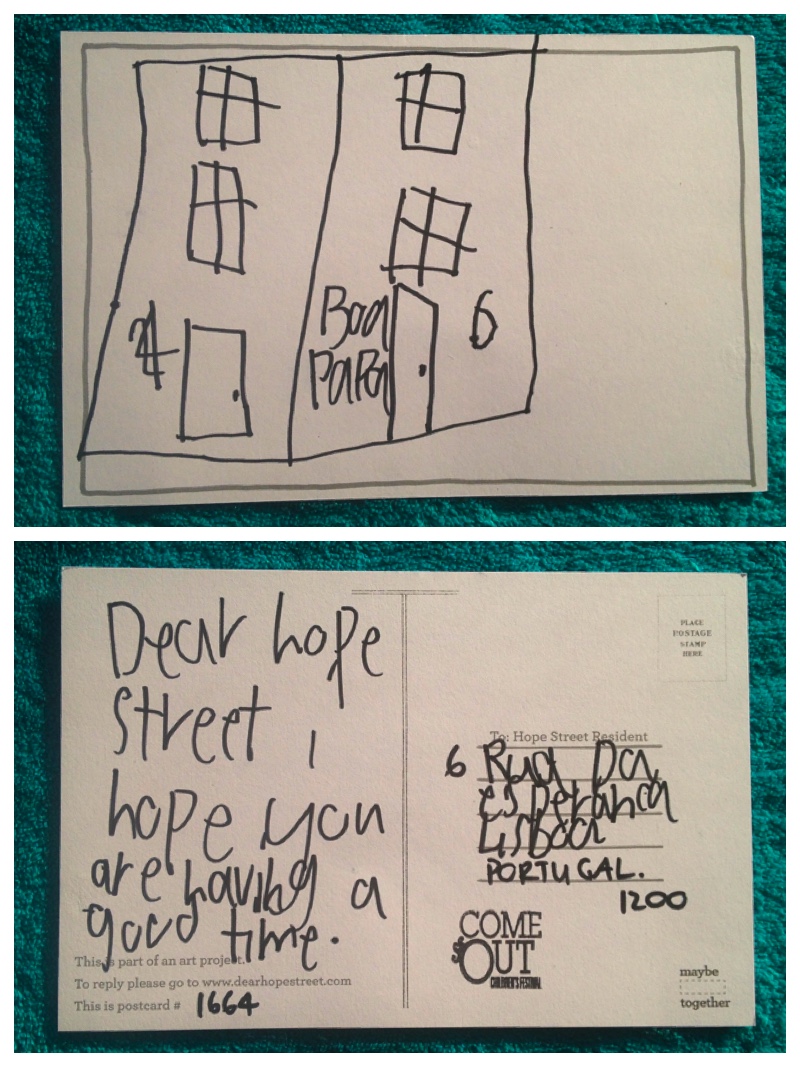 4
Boa
PaPa
6
Dear hope
street i
hope you
are having a
good time.
This is part of an art project.
To reply please go to www.dearhopestreet.com
This is postcard # 1664
PLACE
POSTAGE
STAMP
HERE
To: Hope Street Resident
6 Rua Da
esperanca
Lisboa
PORTUGAL.
1200
COME
OUT
CHILDREN'S FESTIVAL
maybe
together